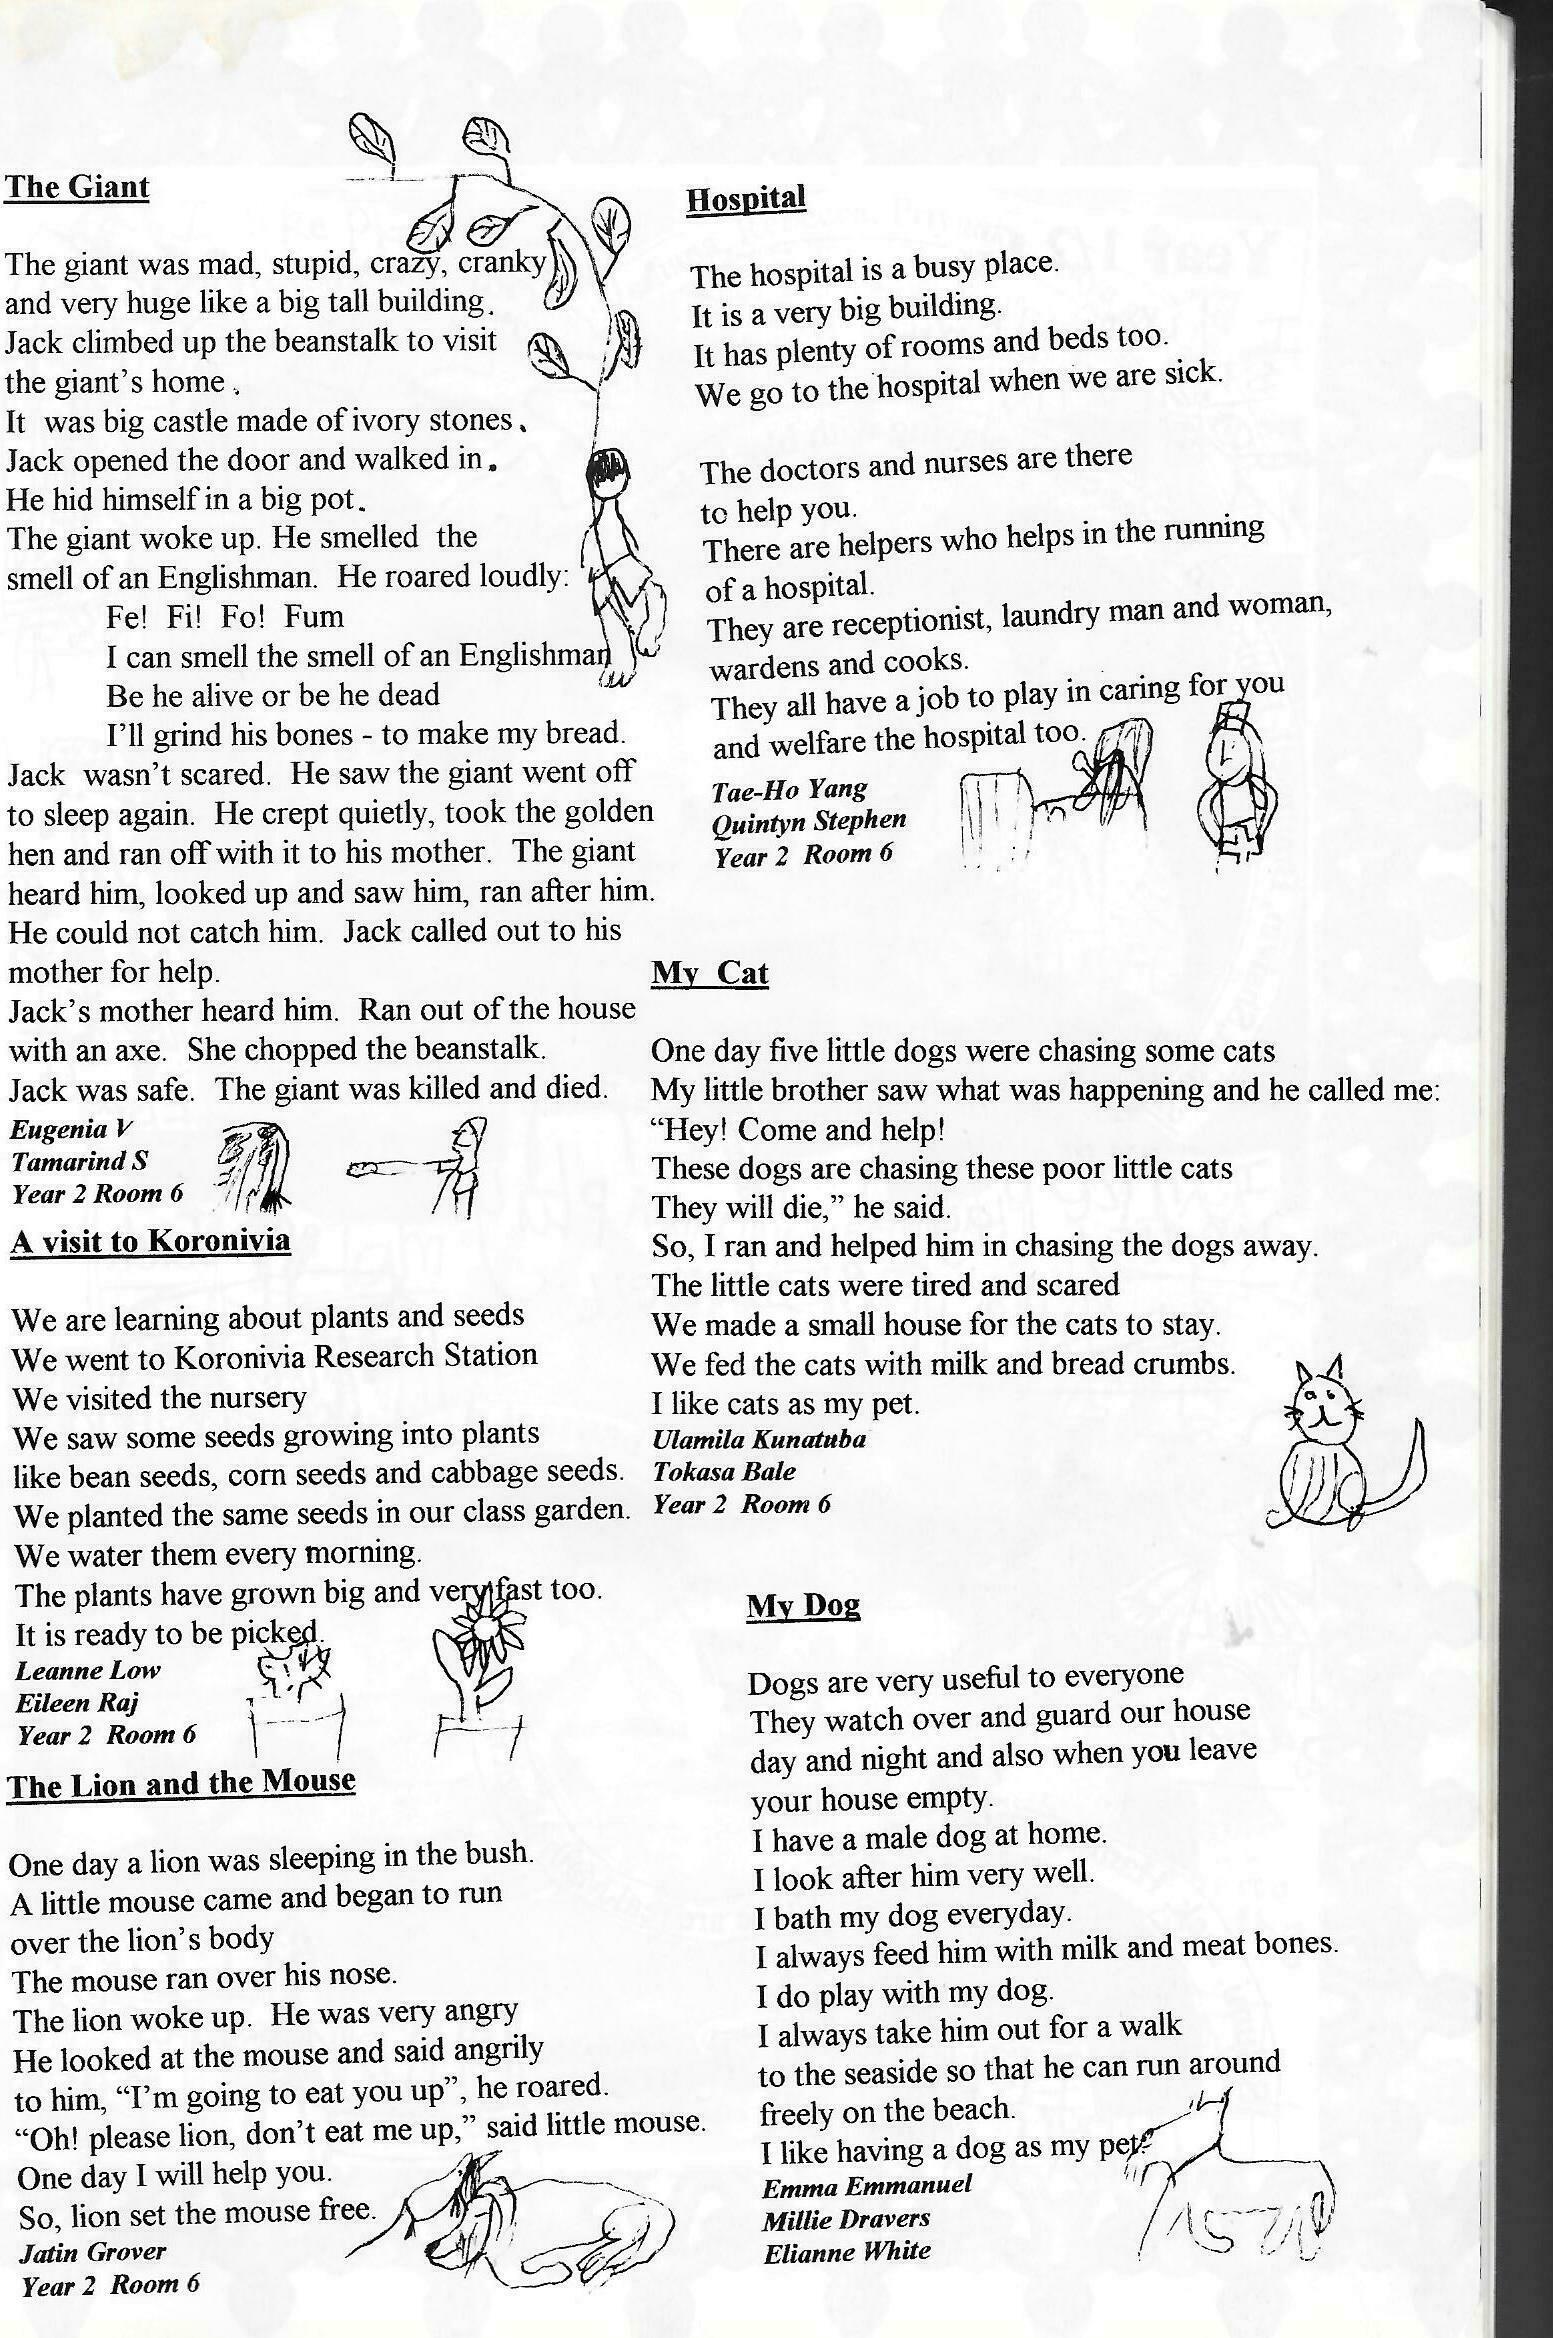 The Giant
The giant was mad, stupid, crazy, cranky
and very huge like a big tall building.
Jack climbed up the beanstalk to visit
the giant's home.
It was big castle made of ivory stones.
Jack opened the door and walked in.
He hid himself in a big pot.
The giant woke up. He smelled the
smell of an Englishman. He roared loudly:
Fe! Fi! Fo! Fum
I can smell the smell of an Englishman
Be he alive or be he dead
I'll grind his bones - to make my bread.
Jack wasn't scared. He saw the giant went off
to sleep again. He crept quietly, took the golden
hen and ran off with it to his mother. The giant
heard him, looked up and saw him, ran after him.
He could not catch him. Jack called out to his
mother for help.
Jack's mother heard him. Ran out of the house
with an axe. She chopped the beanstalk.
Jack was safe. The giant was killed and died.
Eugenia V
Tamarind S
Year 2 Room 6
A visit to Koronivia
We are learning about plants and seeds
We went to Koronivia Research Station
We visited the nursery
We saw some seeds growing into plants
like bean seeds, corn seeds and cabbage seeds.
We planted the same seeds in our class garden.
We water them every morning.
The plants have grown big and very fast too.
It is ready to be picked.
Leanne Low
Eileen Raj
Year 2 Room 6
The Lion and the Mouse
One day a lion was sleeping in the bush.
A little mouse came and began to run
over the lion's body
The mouse ran over his nose.
The lion woke up. He was very angry
He looked at the mouse and said angrily
to him, "I'm going to eat you up", he roared.
"Oh! please lion, don't eat me up," said little mouse.
One day I will help you.
So, lion set the mouse free.
Jatin Grover
Year 2 Room 6
Hospital
The hospital is a busy place.
It is a very big building.
It has plenty of rooms and beds too.
We go to the hospital when we are sick.
The doctors and nurses are there
to help you.
There are helpers who helps in the running
of a hospital.
They are receptionist, laundry man and woman,
wardens and cooks.
They all have a job to play in caring for you
and welfare the hospital too.
Tae-Ho Yang
Quintyn Stephen
Year 2 Room 6
My Cat
One day five little dogs were chasing some cats
My little brother saw what was happening and he called me:
"Hey! Come and help!
These dogs are chasing these poor little cats
They will die," he said.
So, I ran and helped him in chasing the dogs away.
The little cats were tired and scared
We made a small house for the cats to stay.
We fed the cats with milk and bread crumbs.
I like cats as my pet.
Ulamila Kunatuba
Tokasa Bale
Year 2 Room 6
My Dog
Dogs are very useful to everyone
They watch over and guard our house
day and night and also when you leave
your house empty.
I have a male dog at home.
I look after him very well.
I bath my dog everyday.
I always feed him with milk and meat bones.
I do play with my dog.
I always take him out for a walk
to the seaside so that he can run around
freely on the beach.
I like having a dog as my pet.
Emma Emmanuel
Millie Dravers
Elianne White